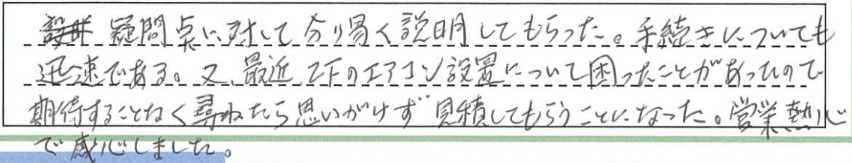 疑問点に対して分り易く説明してもらった。手続きについても
迅速である。又、最近、2Fのエアコン設置について困ったことがあったので
期待することなく尋ねたら思いがけず見積してもらうことになった。営業熱心
で感心しました。